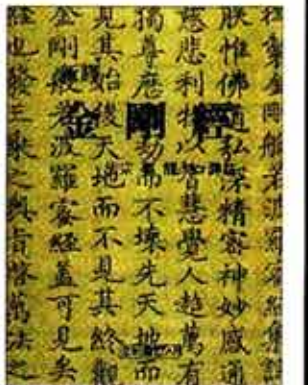 金剛經
製金剛般若波羅密經集註
朕惟佛道弘深精密神妙感通
慈悲利物以智慧覺人超萬有
獨尊歷劫而不壞先天地而
見其始後天地而不見其終觀
金剛般若波羅蜜經蓋可見矣
經也發三乘之奧旨啓萬法之